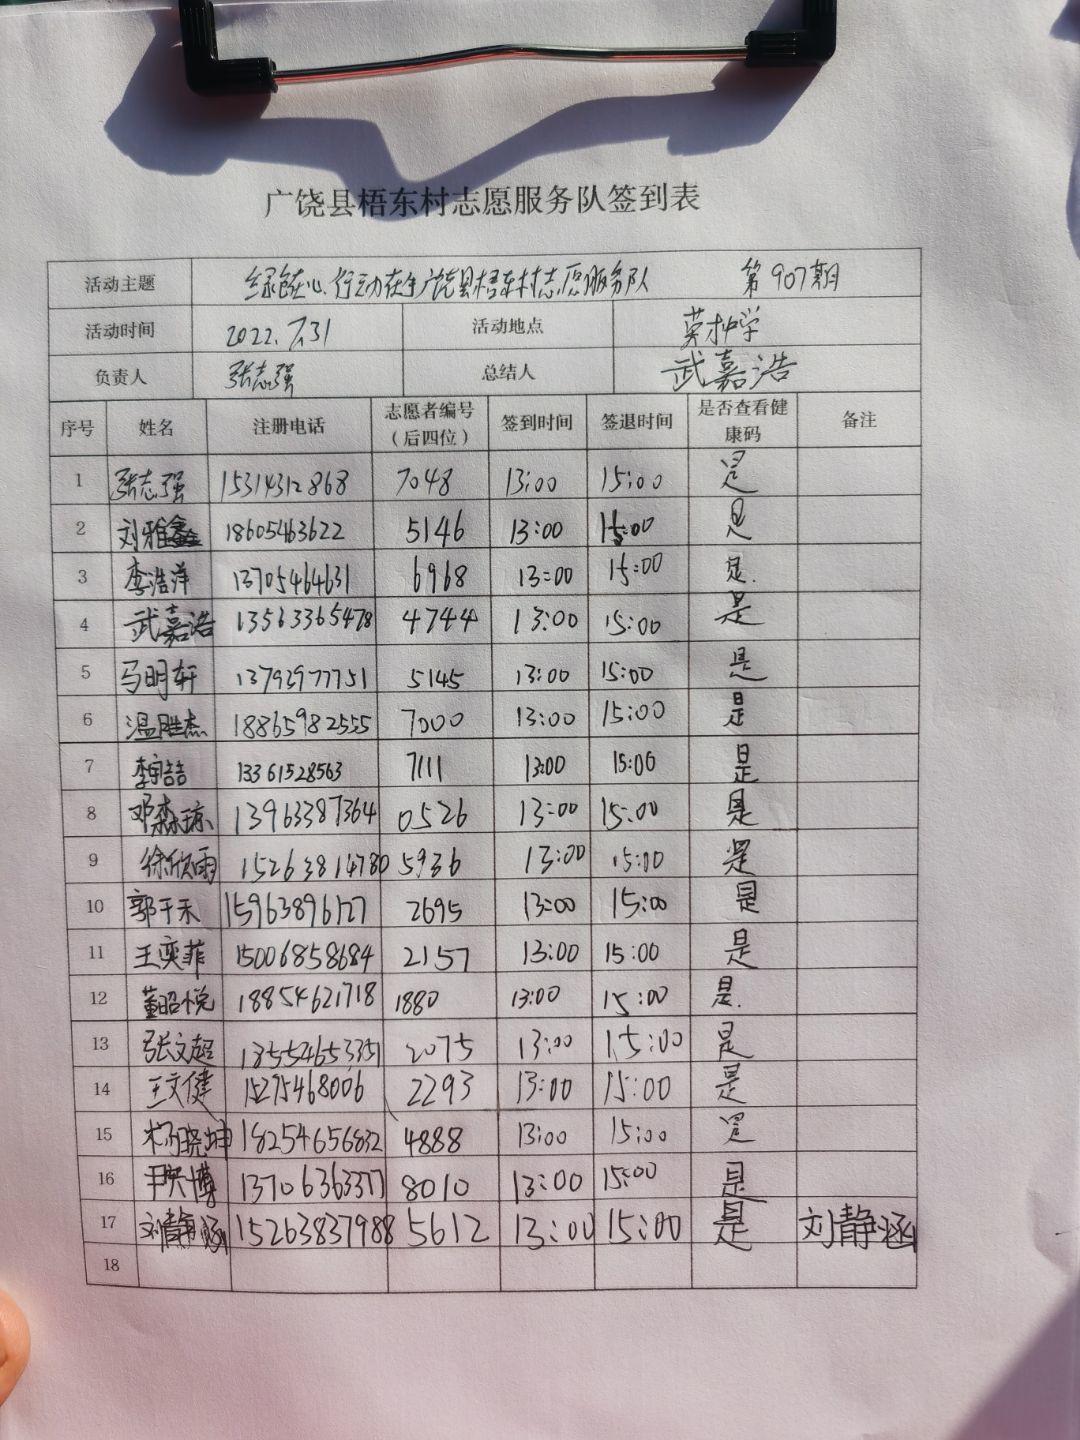 广饶县梧东村志愿服务队签到表
活动主题 绿色在心、行动在手广饶县梧东村志愿服务队 第907期
活动时间 2022.7.31 活动地点 英才中学
负责人 张志强 总结人 武嘉浩
序号 姓名 注册电话 志愿者编号（后四位） 签到时间 签退时间 是否查看健康码 备注
1 张志强 15314312868 7048 13:00 15:00 是
2 刘雅鑫 18605463622 5146 13:00 15:00 是
3 李浩萍 13705464631 6968 13:00 15:00 是.
4 武嘉浩 13563365478 4744 13:00 15:00 是
5 马明轩 13793977751 5145 13:00 15:00 是
6 温胜杰 18865982555 7000 13:00 15:00 是
7 李宇喆 13361528563 7111 13:00 15:00 是
8 邓森琼 13963387364 0526 13:00 15:00 是
9 徐欣雨 15263814780 5936 13:00 15:00 是
10 郭千禾 15963896127 2695 13:00 15:00 是
11 王奕菲 15006858684 2157 13:00 15:00 是
12 董昭悦 18854621718 1880 13:00 15:00 是.
13 张文超 18554653351 2075 13:00 15:00 是
14 王文健 15275468006 2293 13:00 15:00 是
15 杨晓坤 18254656832 4888 13:00 15:00 是
16 13706363377 8010 13:00 15:00 是
17 刘静涵 15263837988 5612 13:00 15:00 是 刘静涵
18